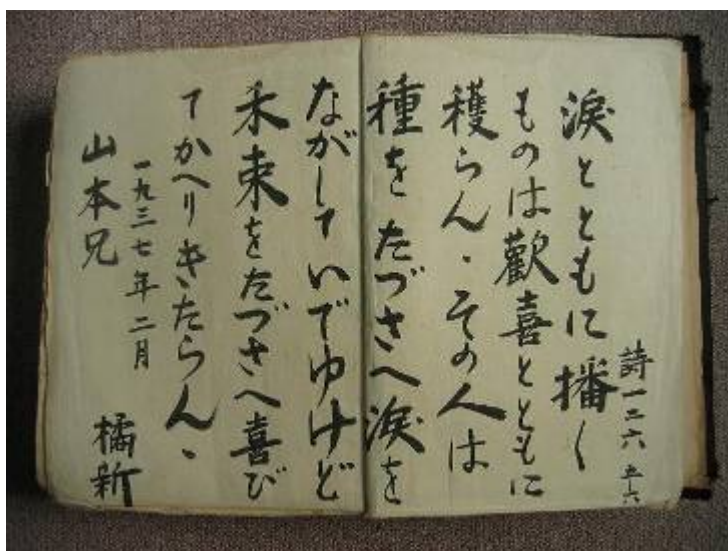 詩一二六 五六
涙とともに播く
ものは歡喜とともに
穫らん、その人は
種をたづさへ涙を
ながしていでゆけど
禾束をたづさへ喜び
てかへりきたらん、
一九三七年二月
山本兄
橘新